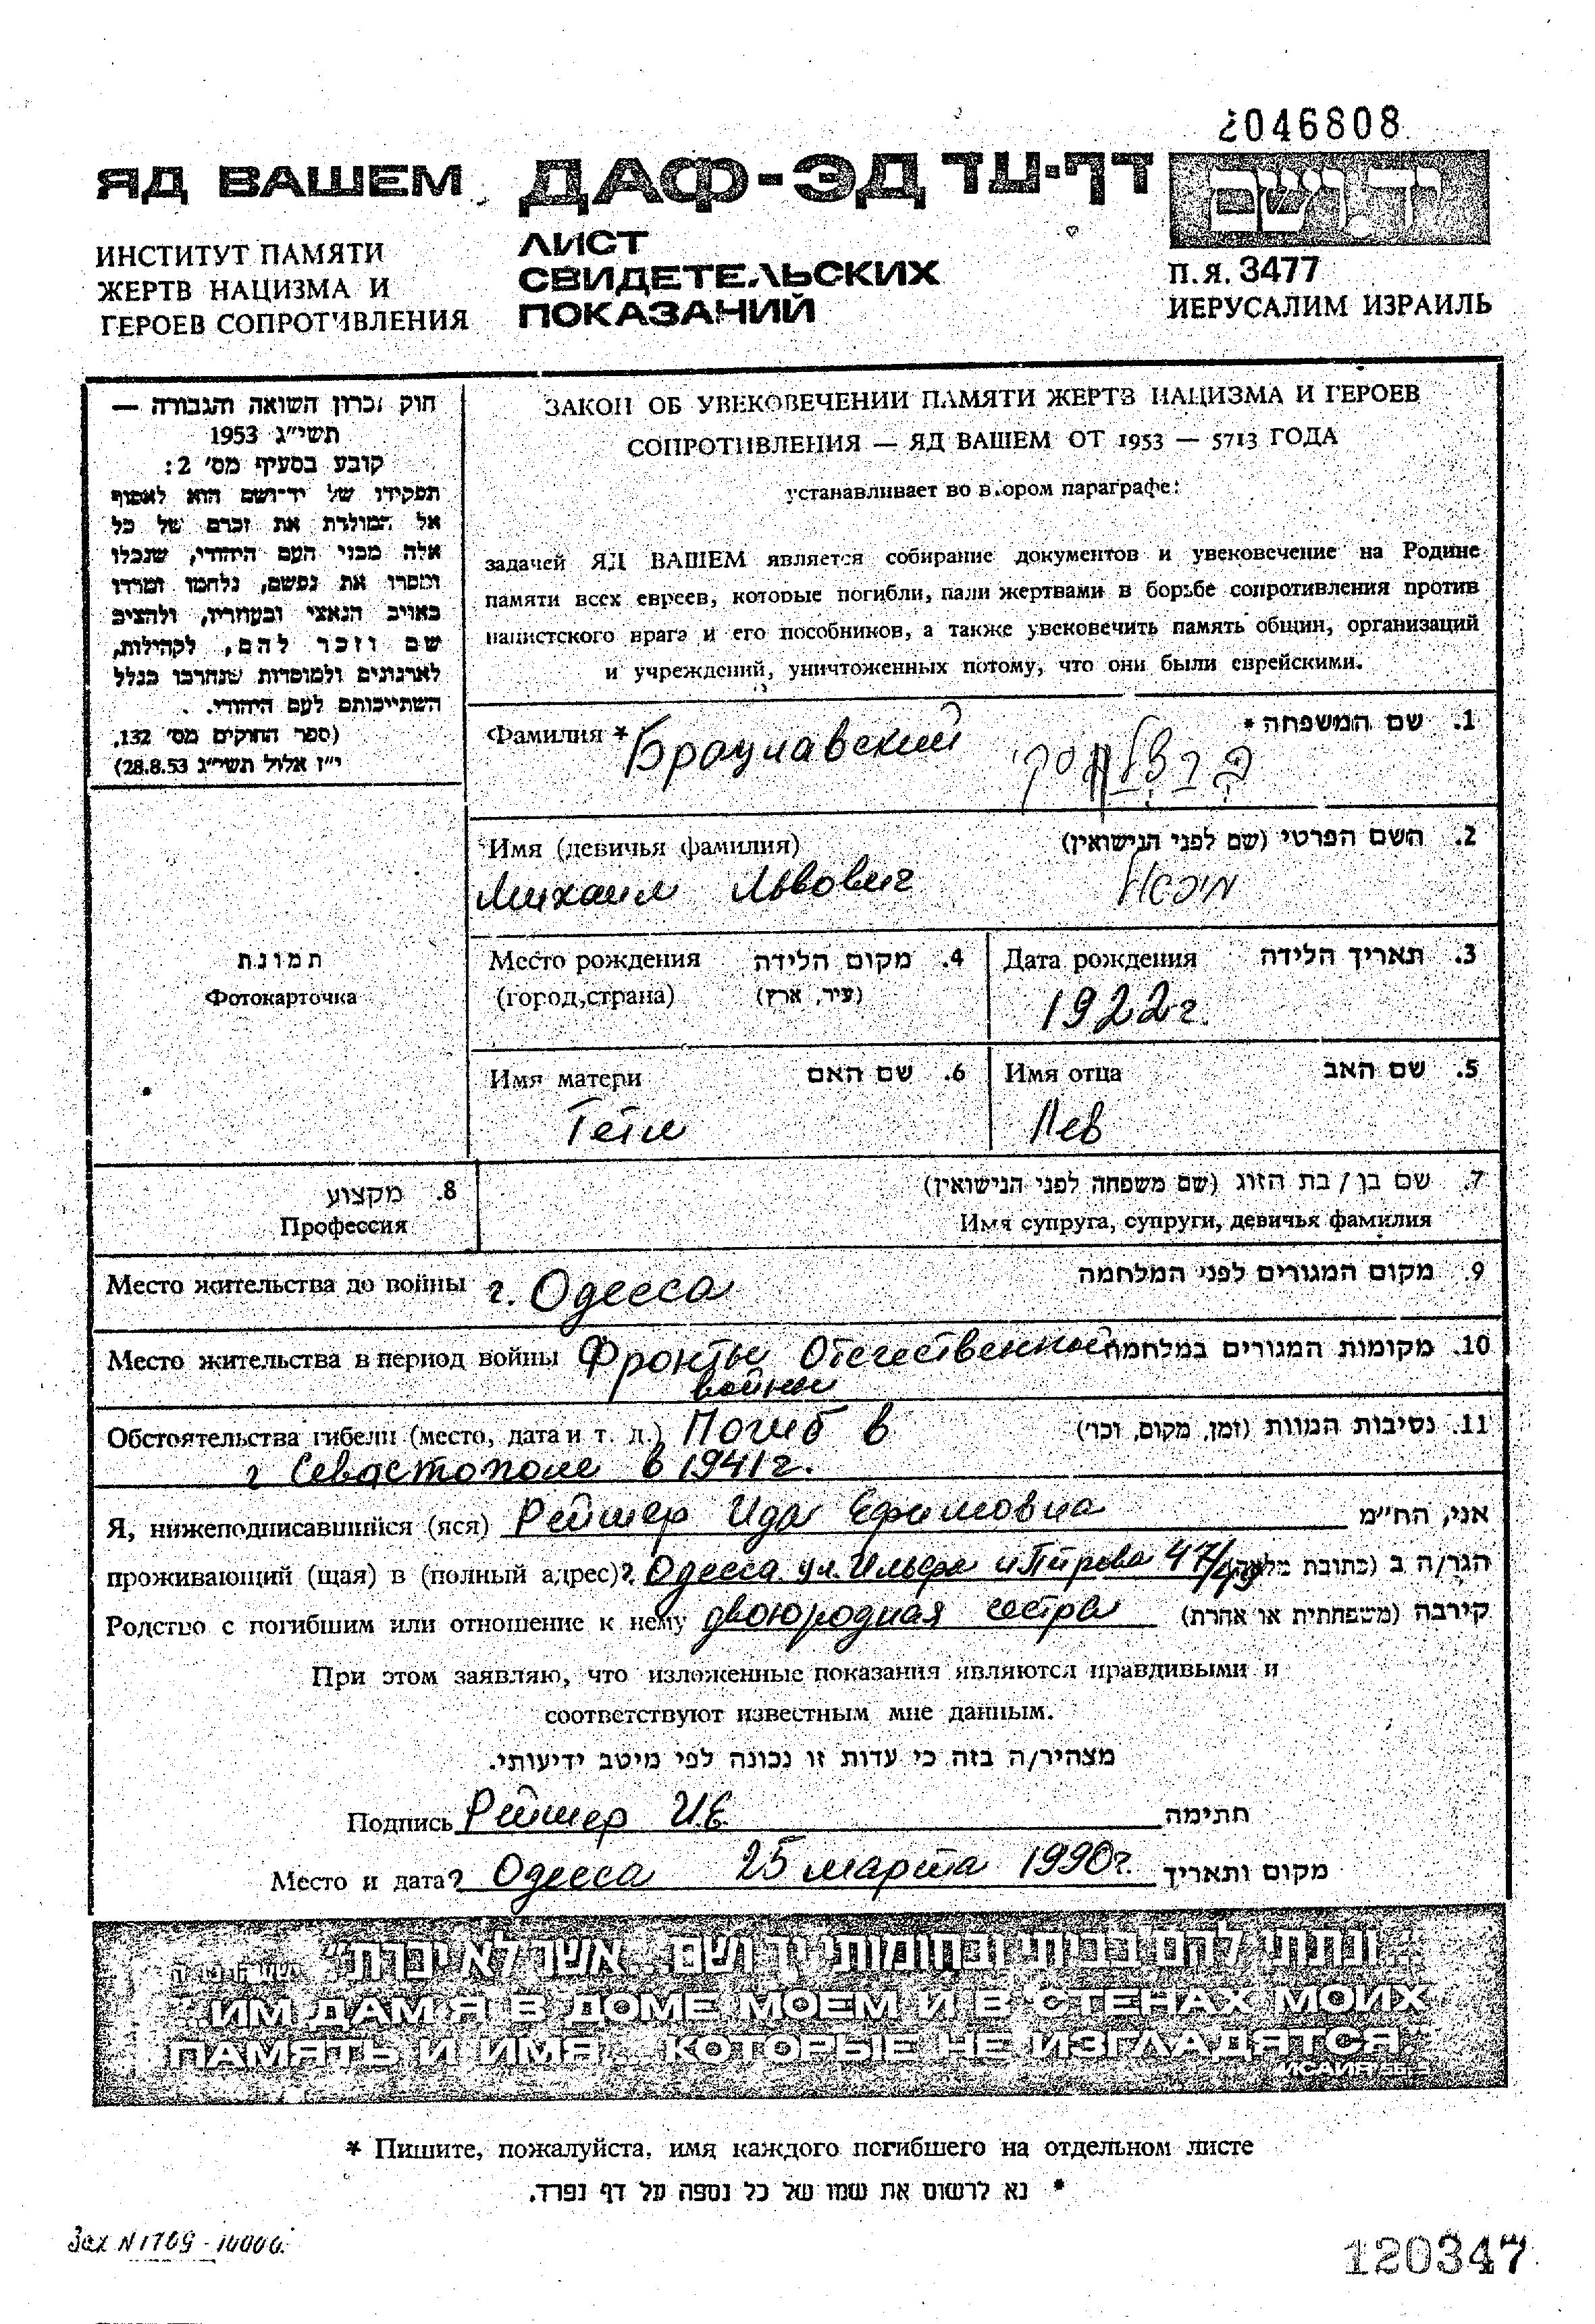 2046808
ЯД ВАШЕМ ДАФ-ЭД דף-עד יד ושם
ИНСТИТУТ ПАМЯТИ
ЖЕРТВ НАЦИЗМА И
ГЕРОЕВ СОПРОТИВЛЕНИЯ
ЛИСТ
СВИДЕТЕЛЬСКИХ
ПОКАЗАНИЙ
П.Я. 3477
ИЕРУСАЛИМ ИЗРАИЛЬ
חוק זכרון השואה והגבורה —
תשי"ג 1953
קובע בסעיף מס' 2:
תפקידו של יד־ושם הוא לאסוף
אל המולדת את זכרם של כל
אלה מבני העם היהודי, שנפלו
ומסרו את נפשם, נלחמו ומרדו
באויב הנאצי ובעוזריו, ולהציב
שם וזכר להם, לקהילות,
לארגונים ולמוסדות שנחרבו בגלל
השתייכותם לעם היהודי.
(ספר החוקים מס' 132,
י"ז אלול תשי"ג 28.8.53)
ЗАКОН ОБ УВЕКОВЕЧЕНИИ ПАМЯТИ ЖЕРТВ НАЦИЗМА И ГЕРОЕВ
СОПРОТИВЛЕНИЯ — ЯД ВАШЕМ ОТ 1953 — 5713 ГОДА
устанавливает во втором параграфе:
задачей ЯД ВАШЕМ является собирание документов и увековечение на Родине
памяти всех евреев, которые погибли, пали жертвами в борьбе сопротивления против
нацистского врага и его пособников, а также увековечить память общин, организаций
и учреждений, уничтоженных потому, что они были еврейскими.
Фамилия * Брацлавский ברצלווסקי 1. שם המשפחה *
Имя (девичья фамилия) 2. השם הפרטי (שם לפני הנישואין)
Михаил Львович מיכאל
תמונת
Фотокарточка
Место рождения 4. מקום הלידה
(город,страна) (עיר, ארץ)
Дата рождения 3. תאריך הלידה
1922г.
Имя матери 6. שם האם
Гетя
Имя отца 5. שם האב
Лев
8. מקצוע
Профессия
7. שם בן / בת הזוג (שם משפחה לפני הנישואין)
Имя супруга, супруги, девичья фамилия
Место жительства до войны г. Одесса 9. מקום המגורים לפני המלחמה
Место жительства в период войны Фронты Отечественной 10. מקומות המגורים במלחמה
войны
Обстоятельства гибели (место, дата и т. д.) Погиб в 11. נסיבות המוות (זמן, מקום, וכר')
г Севастополе в 1941г.
Я, нижеподписавшийся (яся) Реймер Ида Ефимовна אני, הח"מ
проживающий (щая) в (полный адрес) г. Одесса ул. Ильфа и Петрова 47/49 הגר/ה ב (כתובת מלאה)
Родство с погибшим или отношение к нему двоюродная сестра קירבה (משפחתית או אחרת)
При этом заявляю, что изложенные показания являются правдивыми и
соответствуют известным мне данным.
מצהיר/ה בזה כי עדות זו נכונה לפי מיטב ידיעותי.
Подпись Реймер И.Е. חתימה
Место и дата г Одесса 25 марта 1990г. מקום ותאריך
"...ונתתי להם בביתי ובחומותי יד ושם... אשר לא יכרת"
"...ИМ ДАМ Я В ДОМЕ МОЕМ И В СТЕНАХ МОИХ
ПАМЯТЬ И ИМЯ... КОТОРЫЕ НЕ ИЗГЛАДЯТСЯ."
* Пишите, пожалуйста, имя каждого погибшего на отдельном листе
* נא לרשום את שמו של כל נספה על דף נפרד.
Зак N 1769 - 10000.
120347